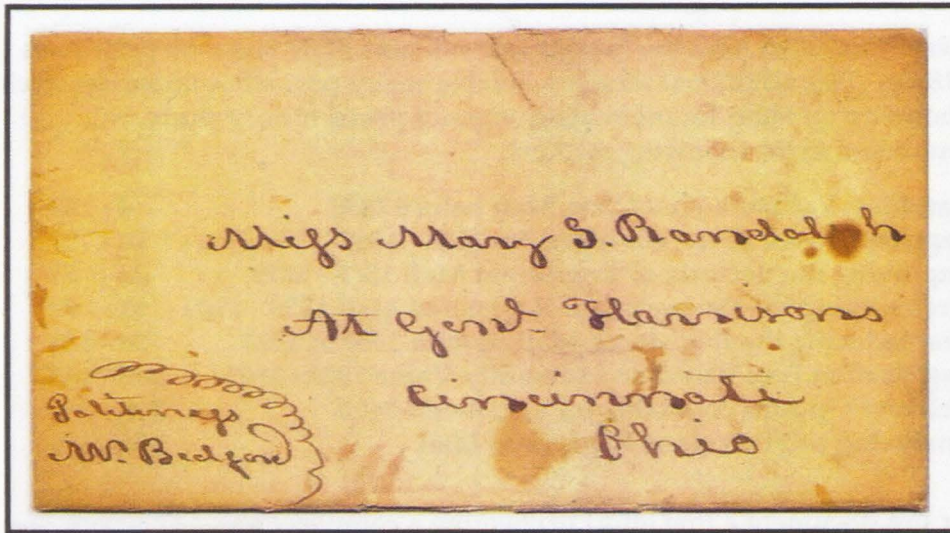 Miss Mary S. Randolph
At Genl. Harrisons
Cincinnati
Ohio
Politeness
Mr. Bedford